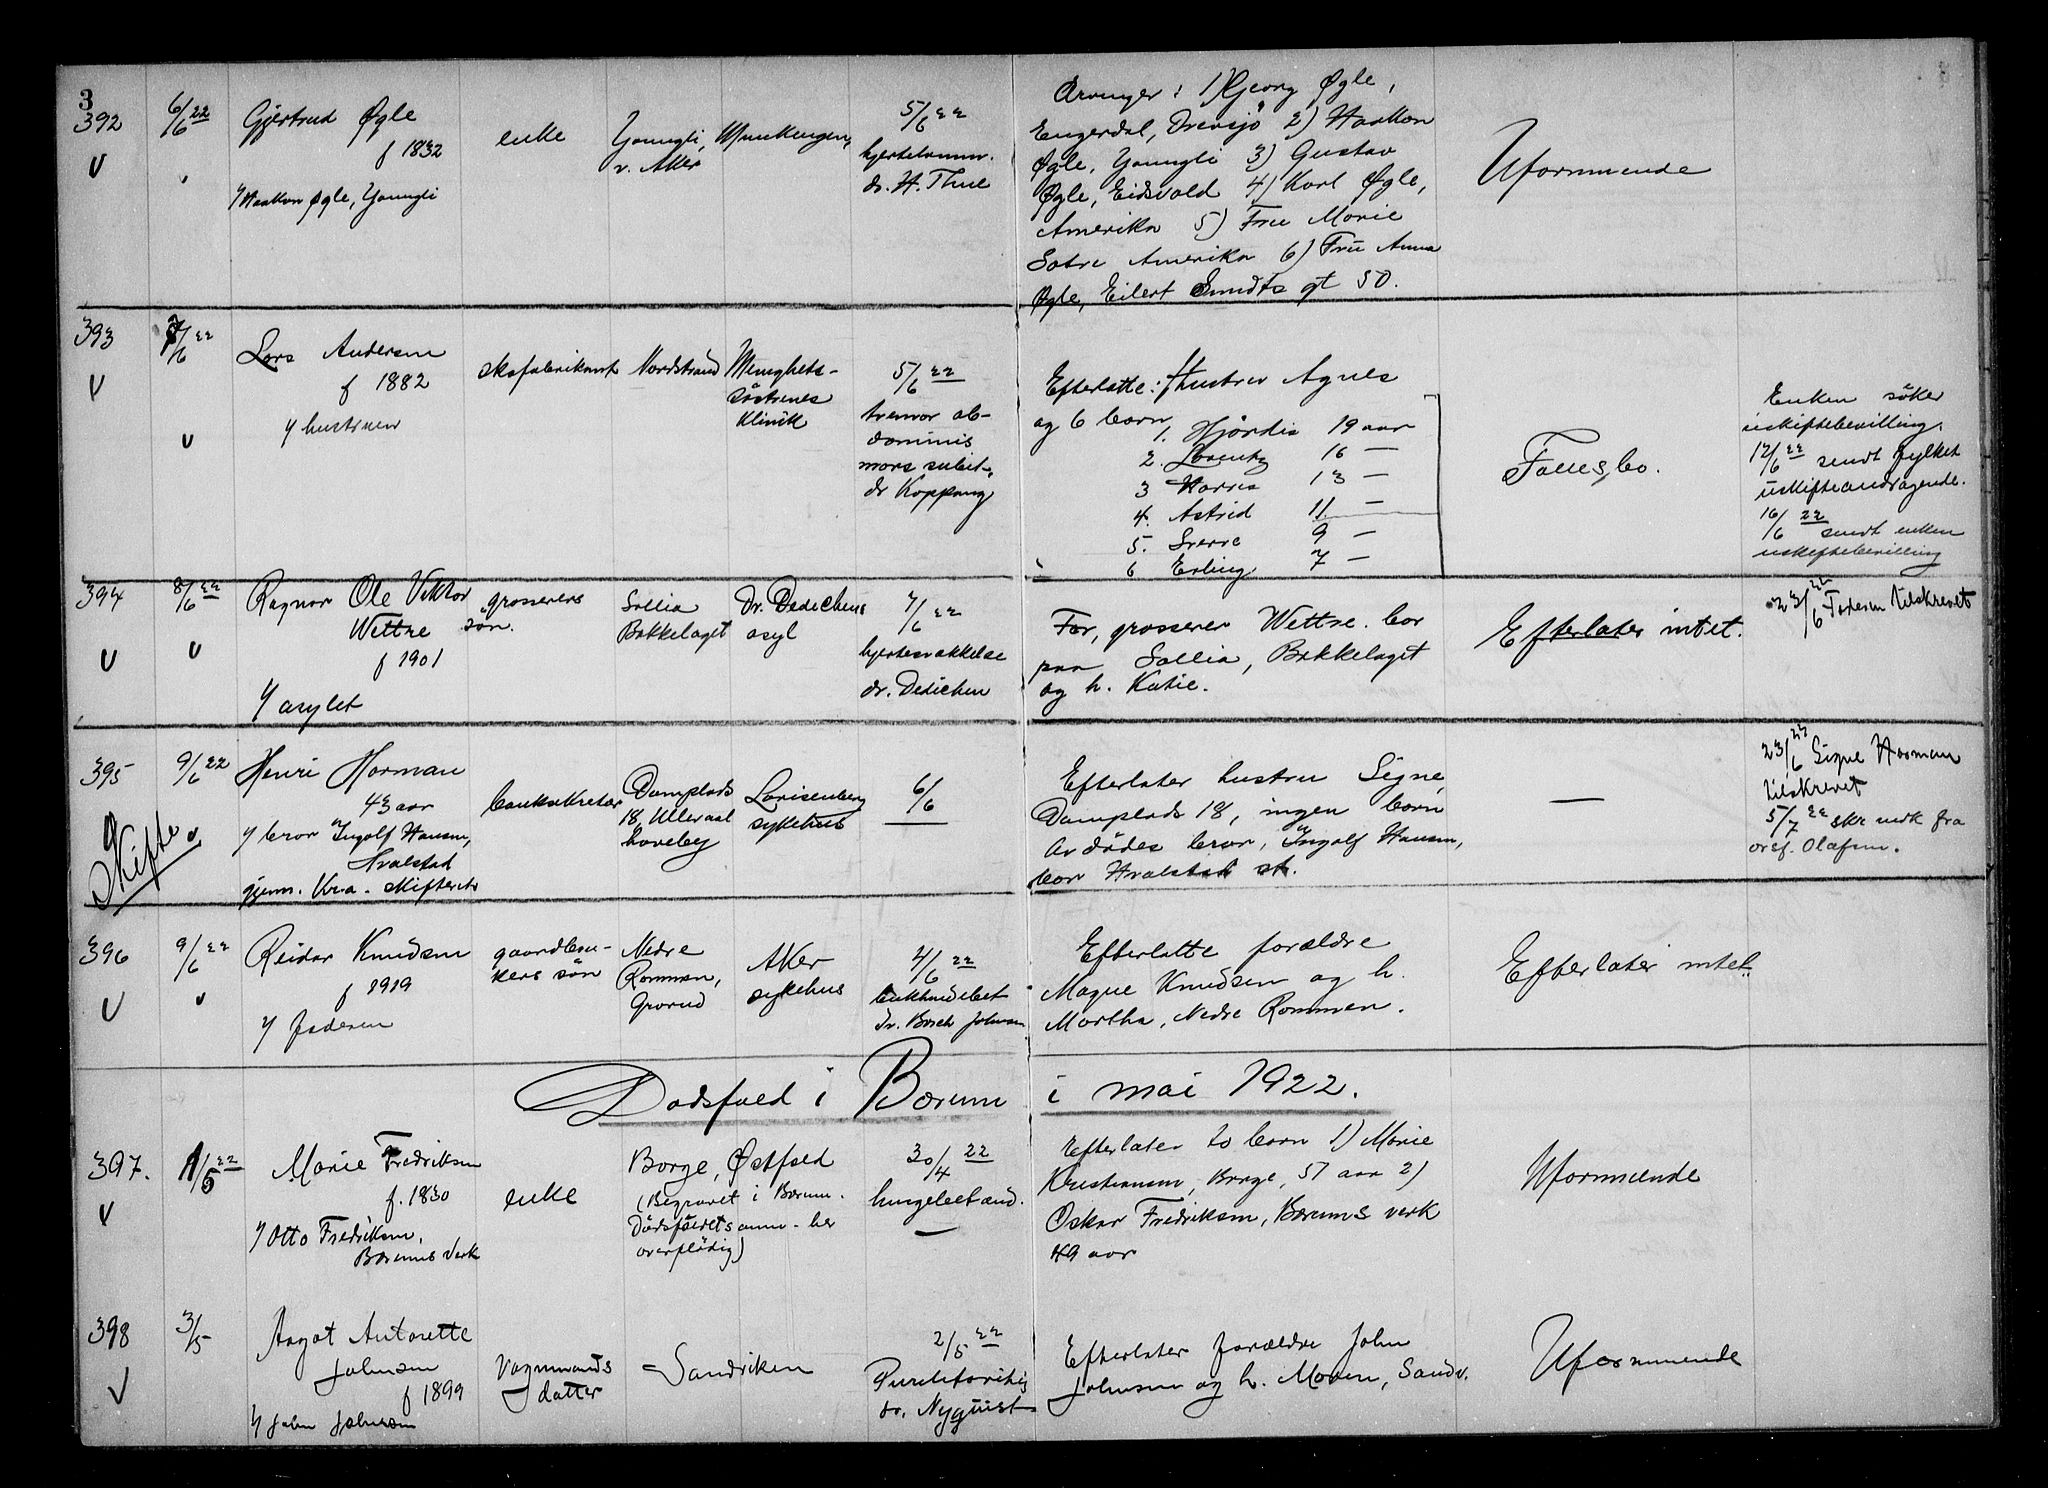 3
392
6/6 22
Gjertrud Øgle
f 1832
v/ Haakon Øgle, Youngli
enke
Youngli,
v. Aker
Munkengen,
5/6 22
hjertelamm.
dr. H. Thue
Arvinger: 1) Georg Øgle,
Engerdal, Drevsjø 2) Haakon
Øgle, Youngli 3) Gustav
Øgle, Eidsvold 4) Karl Øgle,
Amerika 5) Fru Marie
Satre Amerika 6) Fru Anna
Øgle, Eilert Sundts gt 50.
Uformuende
393
7/6 22
Lars Andersen
f 1882
v/ hustruen
skofabrikant
Nordstrand
Menighets-
söstrenes
Klinik
5/6 22
tumor ab-
dominis
mors subit.
dr Koppang
Efterlatte: hustru Agnes
og 6 barn
1. Hjördis 19 aar
2. Lorentz 16 —
3 Harris 13 —
4. Astrid 11 —
5. Sverre 9 —
6 Erling 7 —
Fællesbo.
Enken söker
uskiftebevilling.
12/6 22 sendt fylket
uskifteandragende.
16/6 22 sendt enken
uskiftebevilling
394
8/6 22
Ragnar Ole Viktor
Wettre
f 1901
v/ asylet
grosserers
sön.
Sollia
Bekkelaget
Dr. Dedichens
asyl
7/6 22
hjertesvækkelse
dr. Dedichen
Far, grosserer Wettre. bor
paa Sollia, Bekkelaget
og h. Katie.
Efterlater intet.
23/6 22 Faderen tilskrevet
395
9/6 22
Skifte
Henri Horman
43 aar
v/ bror Ingolf Hansen,
Hvalstad
gjenn. Kr.a. skifteret
banksekretær
Damplads
18, Ullevaal
haveby
Lovisenberg
sykehus
6/6
Efterlater hustru Signe,
Damplads 18, ingen barn
Avdödes bror, Ingolf Hansen,
bor Hvalstad st.
—
23/6 22 Signe Horman
tilskrevet
5/7 22 skr. medk fra
orsf. Olafsen.
396
9/6 22
Reidar Knudsen
f 1919
v/ faderen
gaardbru-
kers sön
Nedre
Rommen,
Grorud
Aker
sykehus
4/6 22
bukhindebet
dr. Borch Johnsen
Efterlatte forældre
Magne Knudsen og h.
Martha, Nedre Rommen.
Efterlater intet.
Dødsfald i Bærum i mai 1922.
397.
1/5 22
Marie Fredriksen
f. 1830
v/ Otto Fredriksen,
Bærums Verk
enke
Borge, Østfold
(Begravet i Bærum.
Dödsfaldsanm. her
overflödig)
30/4 22
lungebetænd.
—
Efterlater to barn 1) Marie
Kristiansen, Borge, 57 aar 2)
Oskar Fredriksen, Bærums verk
49 aar
Uformuende
398
3/5
Aagot Antonette
Johnsen
f 1899
v/ John Johnsen
Vognmands
datter
Sandviken
2/5 22
dr. Nyquist
Efterlater forældre John
Johnsen og h. Maren, Sandv.
Uformuende